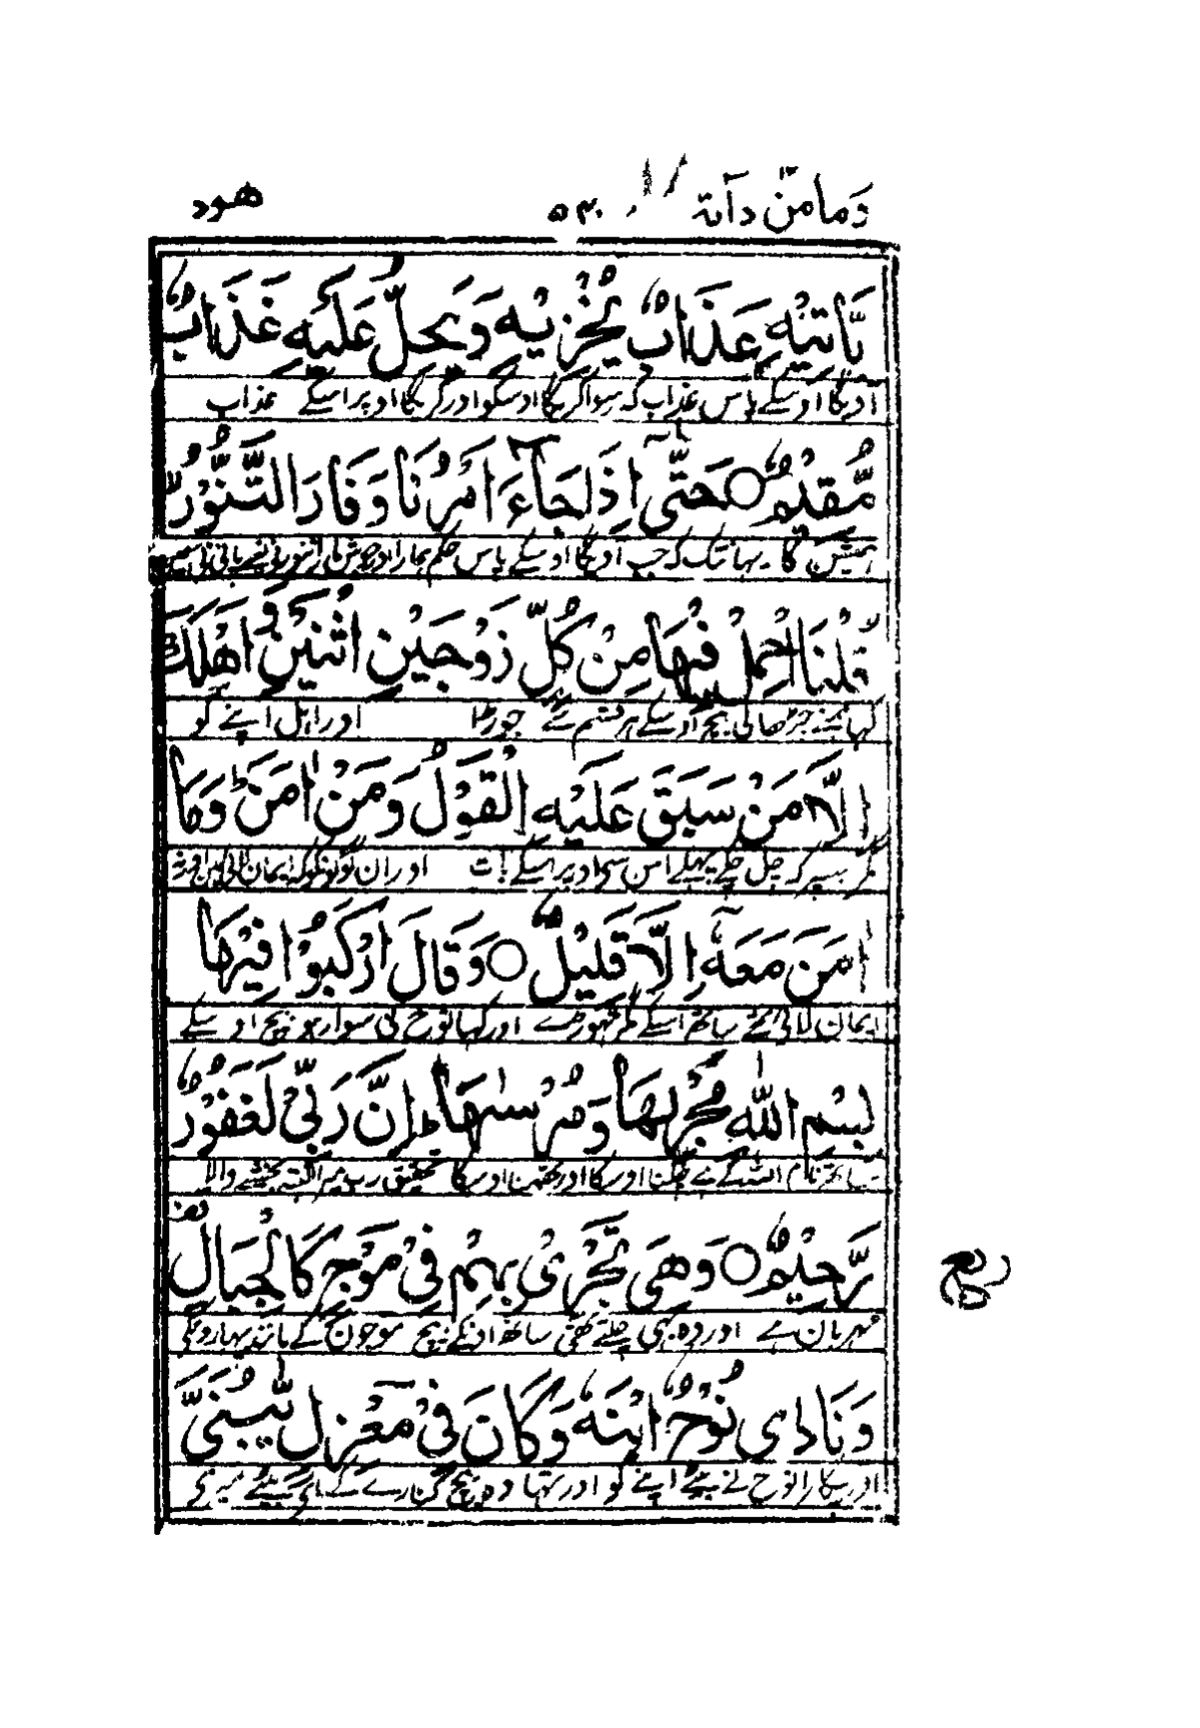 وَمَا مِنْ دَآبَّة ۵۳۰ هود
يَّاْتِيْهِ عَذَابٌ يُّخْزِيْهِ وَيَحِلُّ عَلَيْهِ عَذَابٌ
آویگا اوسکے پاس عذاب کہ رسوا کریگا اوسکو اور اتریگا اوپر اسکے عذاب
مُّقِيْمٌ ○ حَتّٰٓى اِذَا جَآءَ اَمْرُنَا وَفَارَ التَّنُّوْرُ ۙ
ہمیش کا ۔ یہانتک کہ جب آویگا اوسکے پاس حکم ہمارا اور جوش مارا تنور نے
قُلْنَا احْمِلْ فِيْهَا مِنْ كُلٍّ زَوْجَيْنِ اثْنَيْنِ وَاَهْلَكَ
کہا ہمنے چڑھالی بیچ اوسکے ہر قسم سے جوڑا اور اہل اپنے کو
اِلَّا مَنْ سَبَقَ عَلَيْهِ الْقَوْلُ وَمَنْ اٰمَنَ ؕ وَمَآ
مگر جسپر کہ چل چکے پہلے اس سے اوپر اسکے بات اور ان لوگونکو کہ ایمان لائی ہین اور نہ
اٰمَنَ مَعَهٗٓ اِلَّا قَلِيْلٌ ○ وَقَالَ ارْكَبُوْا فِيْهَا
ایمان لائی تھے ساتھ اسکے مگر تھوڑے اور کہا نوح نی سوار ہو بیچ اوسکے
بِسْمِ اللّٰهِ مَجْرٖىهَا وَمُرْسٰىهَا ؕ اِنَّ رَبِّيْ لَغَفُوْرٌ
ساتھ نام اللہ کے ہے چلنا اوسکا اور تھمنا اوسکا تحقیق رب میرا البتہ بخشنے والا
رَّحِيْمٌ ○ وَهِىَ تَجْرِيْ بِهِمْ فِيْ مَوْجٍ كَالْجِبَالِ
مہربان ہے اور وہ چلتی تھی ساتھ اونکے بیچ موجون کے مانند پہاڑونکی
ربع
وَنَادٰى نُوْحُ ابْنَهٗ وَكَانَ فِيْ مَعْزِلٍ يّٰبُنَىَّ
اور پکارا نوح نے بیٹے اپنے کو اور تہا وہ بیچ کنارے کے ای بیٹے میری